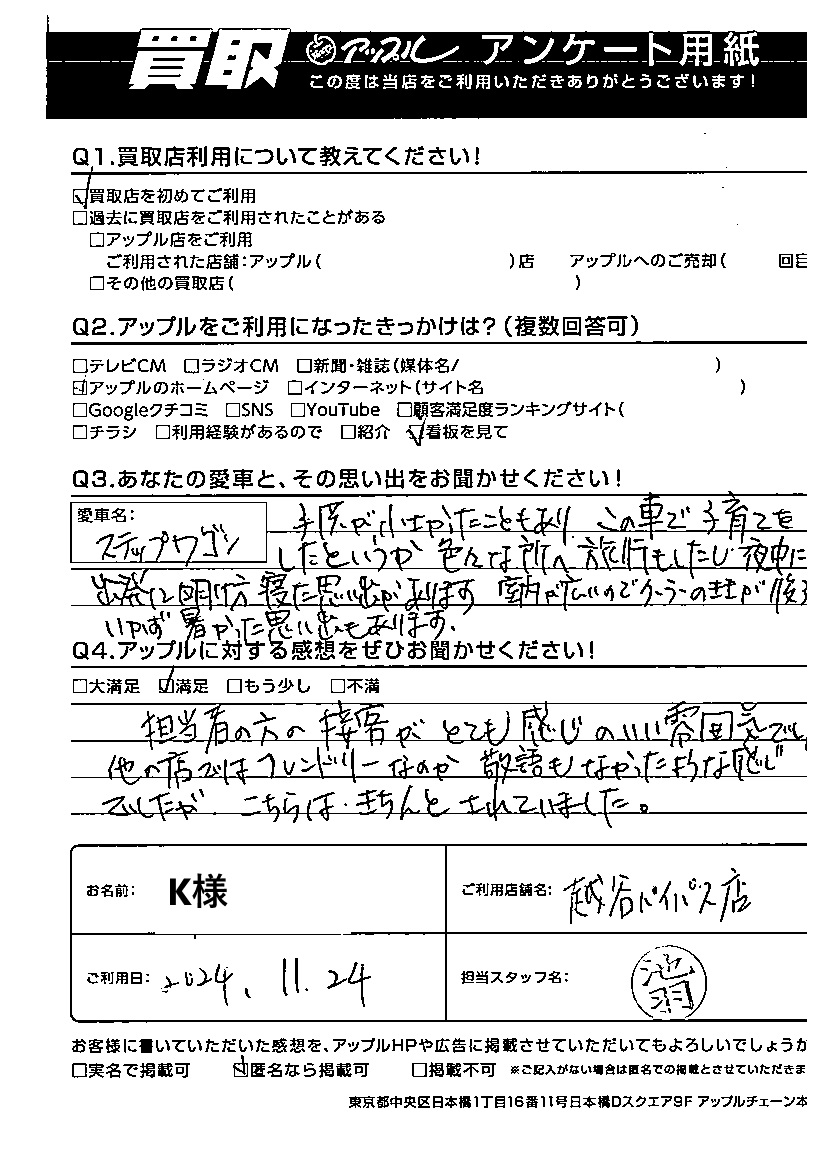 買取 アップル アンケート用紙
この度は当店をご利用いただきありがとうございます!
Q1.買取店利用について教えてください!
☑買取店を初めてご利用
□過去に買取店をご利用されたことがある
□アップル店をご利用
ご利用された店舗:アップル( )店 アップルへのご売却( 回目
□その他の買取店( )
Q2.アップルをご利用になったきっかけは?(複数回答可)
□テレビCM □ラジオCM □新聞・雑誌(媒体名/ )
☑アップルのホームページ □インターネット(サイト名 )
□Googleクチコミ □SNS □YouTube □顧客満足度ランキングサイト(
□チラシ □利用経験があるので □紹介 ☑看板を見て
Q3.あなたの愛車と、その思い出をお聞かせください!
愛車名:
ステップワゴン
子供が小さかったこともあり この車で子育てを
したというか 色々な所へ旅行もしたし 夜中に
出発し 明け方 寝た思い出があります 室内が広いのでクーラーの
いかず 暑かった思い出もあります.
Q4.アップルに対する感想をぜひお聞かせください!
□大満足 ☑満足 □もう少し □不満
担当者の方の接客が とても感じのいい雰囲気でし
他の店ではフレンドリーなのか 敬語もなかったような感じ
でしたが、こちらは きちんとされていました。
お名前: K様
ご利用店舗名: 越谷バイパス店
ご利用日: 2024. 11. 24
担当スタッフ名:
お客様に書いていただいた感想を、アップルHPや広告に掲載させていただいてもよろしいでしょうか
□実名で掲載可 ☑匿名なら掲載可 □掲載不可 ※ご記入がない場合は匿名での掲載とさせていただきま
東京都中央区日本橋1丁目16番11号日本橋Dスクエア9F アップルチェーン本